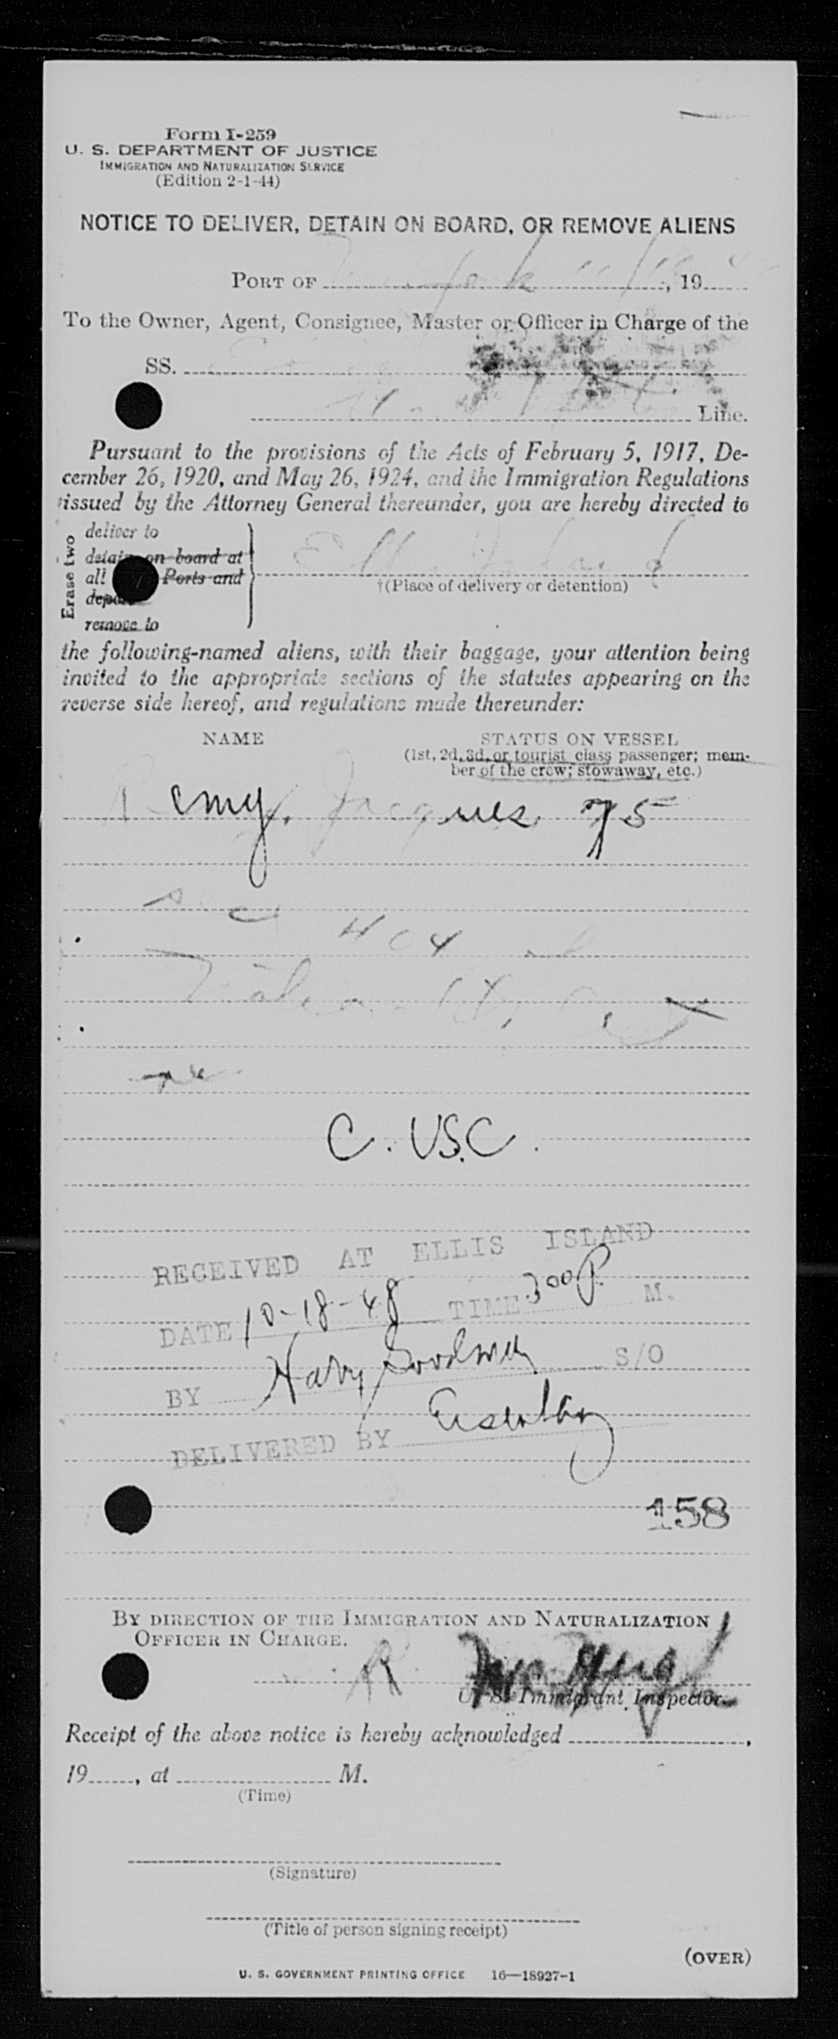 Form I-259
U. S. DEPARTMENT OF JUSTICE
IMMIGRATION AND NATURALIZATION SERVICE
(Edition 2-1-44)
NOTICE TO DELIVER, DETAIN ON BOARD, OR REMOVE ALIENS
PORT OF York, 19
To the Owner, Agent, Consignee, Master or Officer in Charge of the
SS.
Line.
Pursuant to the provisions of the Acts of February 5, 1917, De-
cember 26, 1920, and May 26, 1924, and the Immigration Regulations
issued by the Attorney General thereunder, you are hereby directed to
Erase two
deliver to
detain on board at
all Ports and
remove to
Ellis Island
†(Place of delivery or detention)
the following-named aliens, with their baggage, your attention being
invited to the appropriate sections of the statutes appearing on the
reverse side hereof, and regulations made thereunder:
NAME STATUS ON VESSEL
(1st, 2d, 3d, or tourist class passenger; mem-
ber of the crew; stowaway, etc.)
Remy, Jacques
404
C. USC.
RECEIVED AT ELLIS ISLAND
DATE 10-18-48 TIME 300 P. M.
BY S/O
DELIVERED BY
158
BY DIRECTION OF THE IMMIGRATION AND NATURALIZATION
OFFICER IN CHARGE.
U. S. Immigrant Inspector.
Receipt of the above notice is hereby acknowledged ,
19 , at M.
(Time)
(Signature)
(Title of person signing receipt)
(OVER)
U. S. GOVERNMENT PRINTING OFFICE 16—18927-1